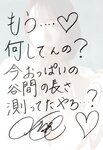 もう…♡
何してんの?
今おっぱいの
谷間の長さ
測ってたやろ?